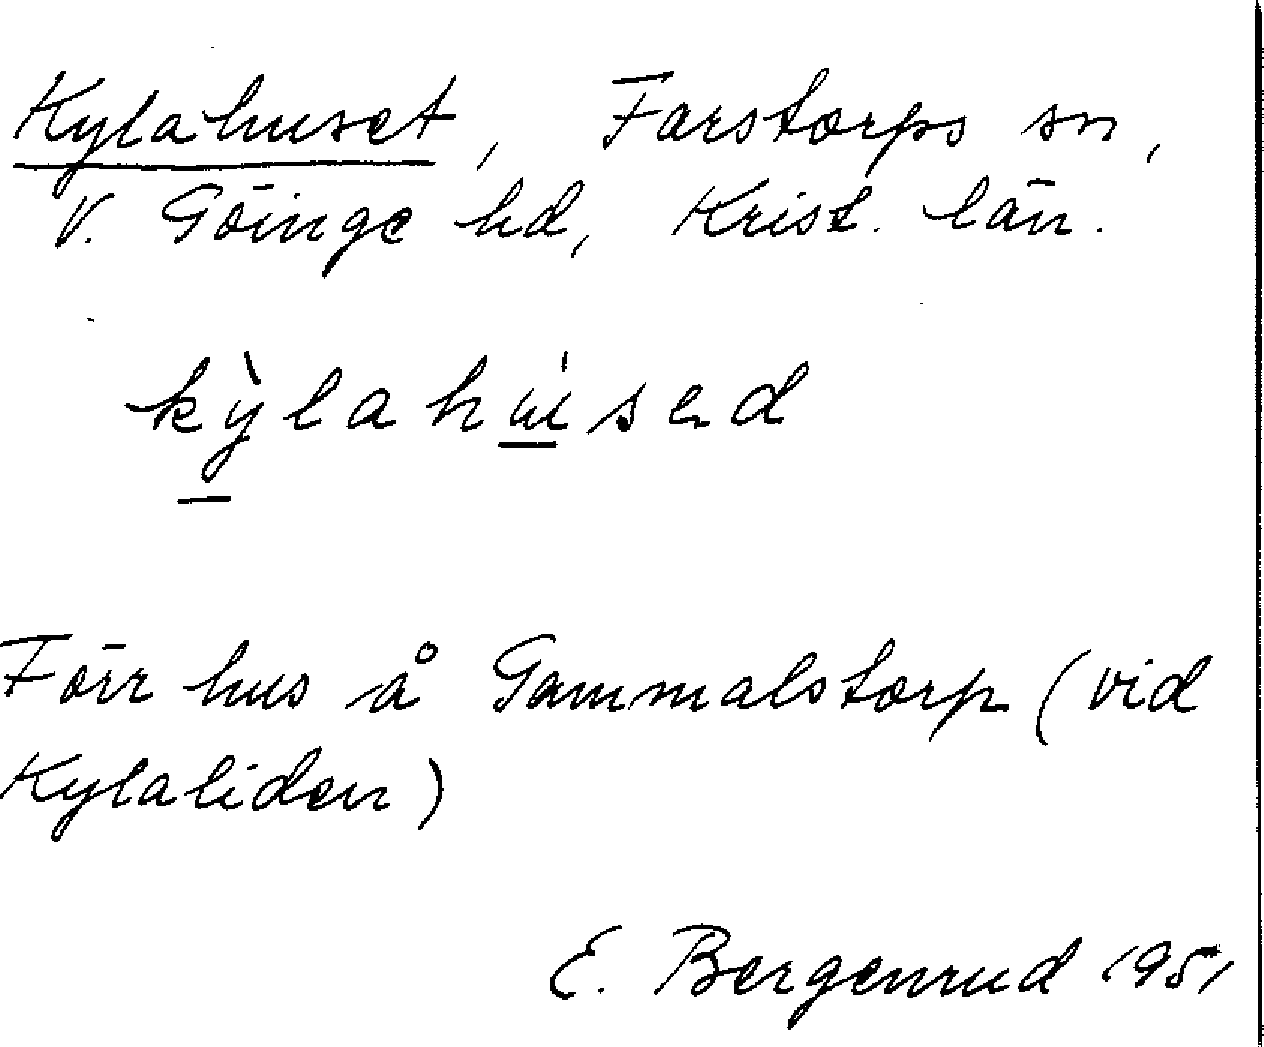 Kylahuset, Farstorps sn,
V. Göinge hd, Krist. län.
kỳlahúsed
Förr hus å Gammalstorp (vid
Kylaliden)
E. Bergenrud 1951